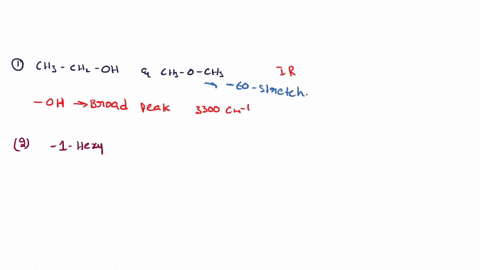 ① CH3-CH2-OH & CH3-O-CH3 IR
→ -CO-Stretch.
-OH → Broad Peak 3300 Cm-1
(2) -1-Hexy